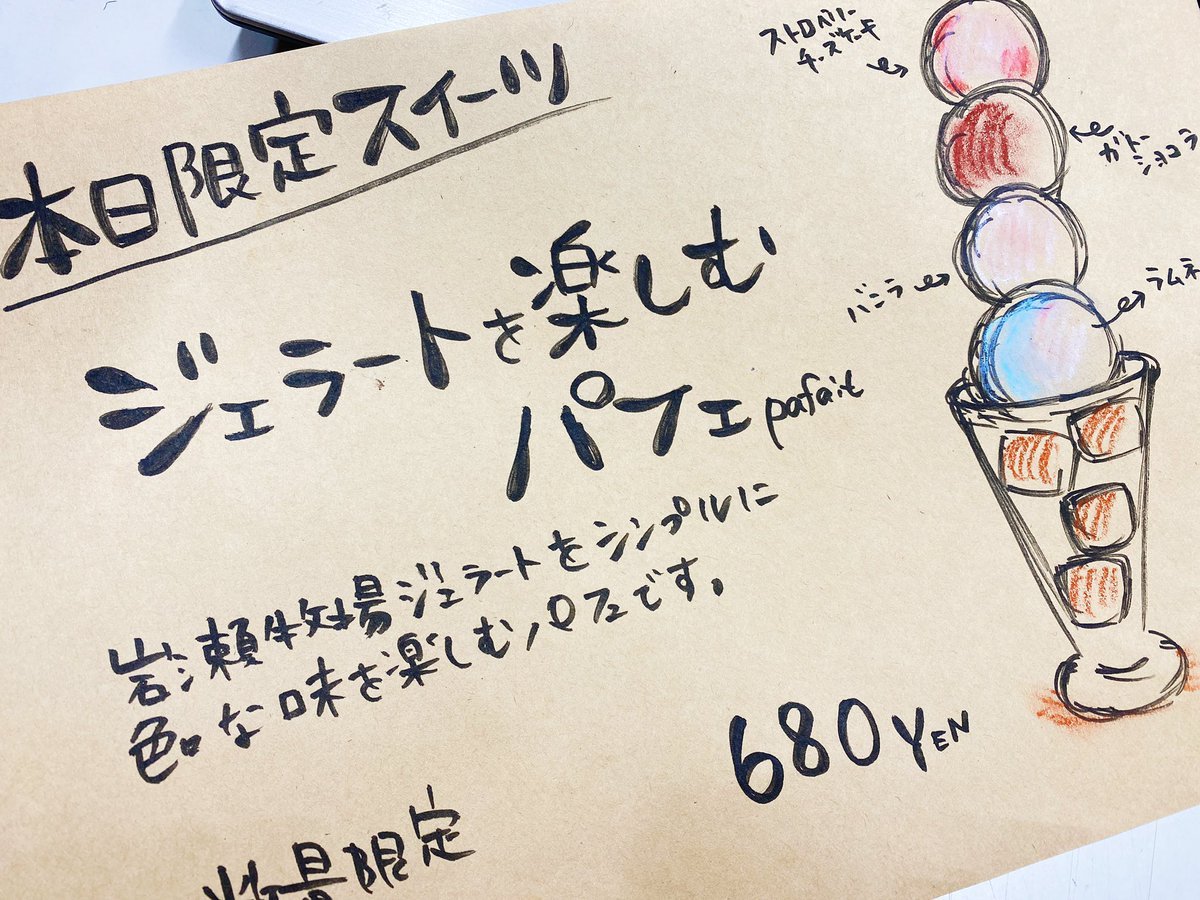 本日限定スイーツ
ジェラートを楽しむ
パフェ parfait
岩瀬牧場ジェラートをシンプルに
色々な味を楽しむパフェです。
680 YEN
数量限定
ストロベリー
チーズケーキ
ガトー
ショコラ
バニラ
ラムネ